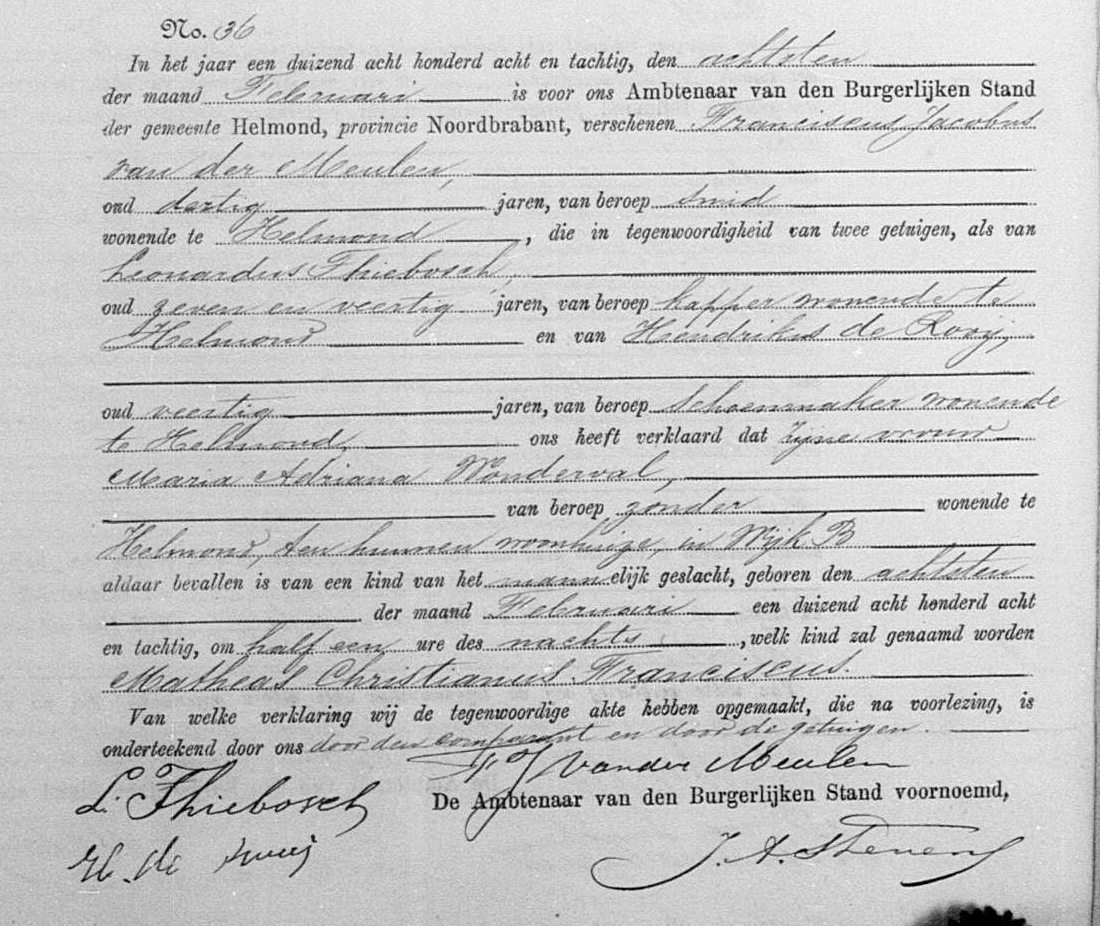 No. 36
In het jaar een duizend acht honderd acht en tachtig, den achtsten
der maand Februari is voor ons Ambtenaar van den Burgerlijken Stand
der gemeente Helmond, provincie Noordbrabant, verschenen Franciscus Jacobus
van der Meulen,
oud dertig jaren, van beroep smid
wonende te Helmond, die in tegenwoordigheid van twee getuigen, als van
Leonardus Thiebosch,
oud zeven en veertig jaren, van beroep kapper wonende te
Helmond en van Hendrikus de Rooij,
oud veertig jaren, van beroep Schoenmaker wonende
te Helmond, ons heeft verklaard dat zijne vrouw
Maria Adriana Wonderval,
van beroep zonder wonende te
Helmond, ten hunnen woonhuize, in Wijk B
aldaar bevallen is van een kind van het mannelijk geslacht, geboren den achtsten
der maand Februari een duizend acht honderd acht
en tachtig, om half een ure des nachts, welk kind zal genaamd worden
Matheas Christianus Franciscus.
Van welke verklaring wij de tegenwoordige akte hebben opgemaakt, die na voorlezing, is
onderteekend door ons door den comparant en door de getuigen.
F J Vander Meulen
L. Thiebosch De Ambtenaar van den Burgerlijken Stand voornoemd,
H. de Rooij J. A. Stevens